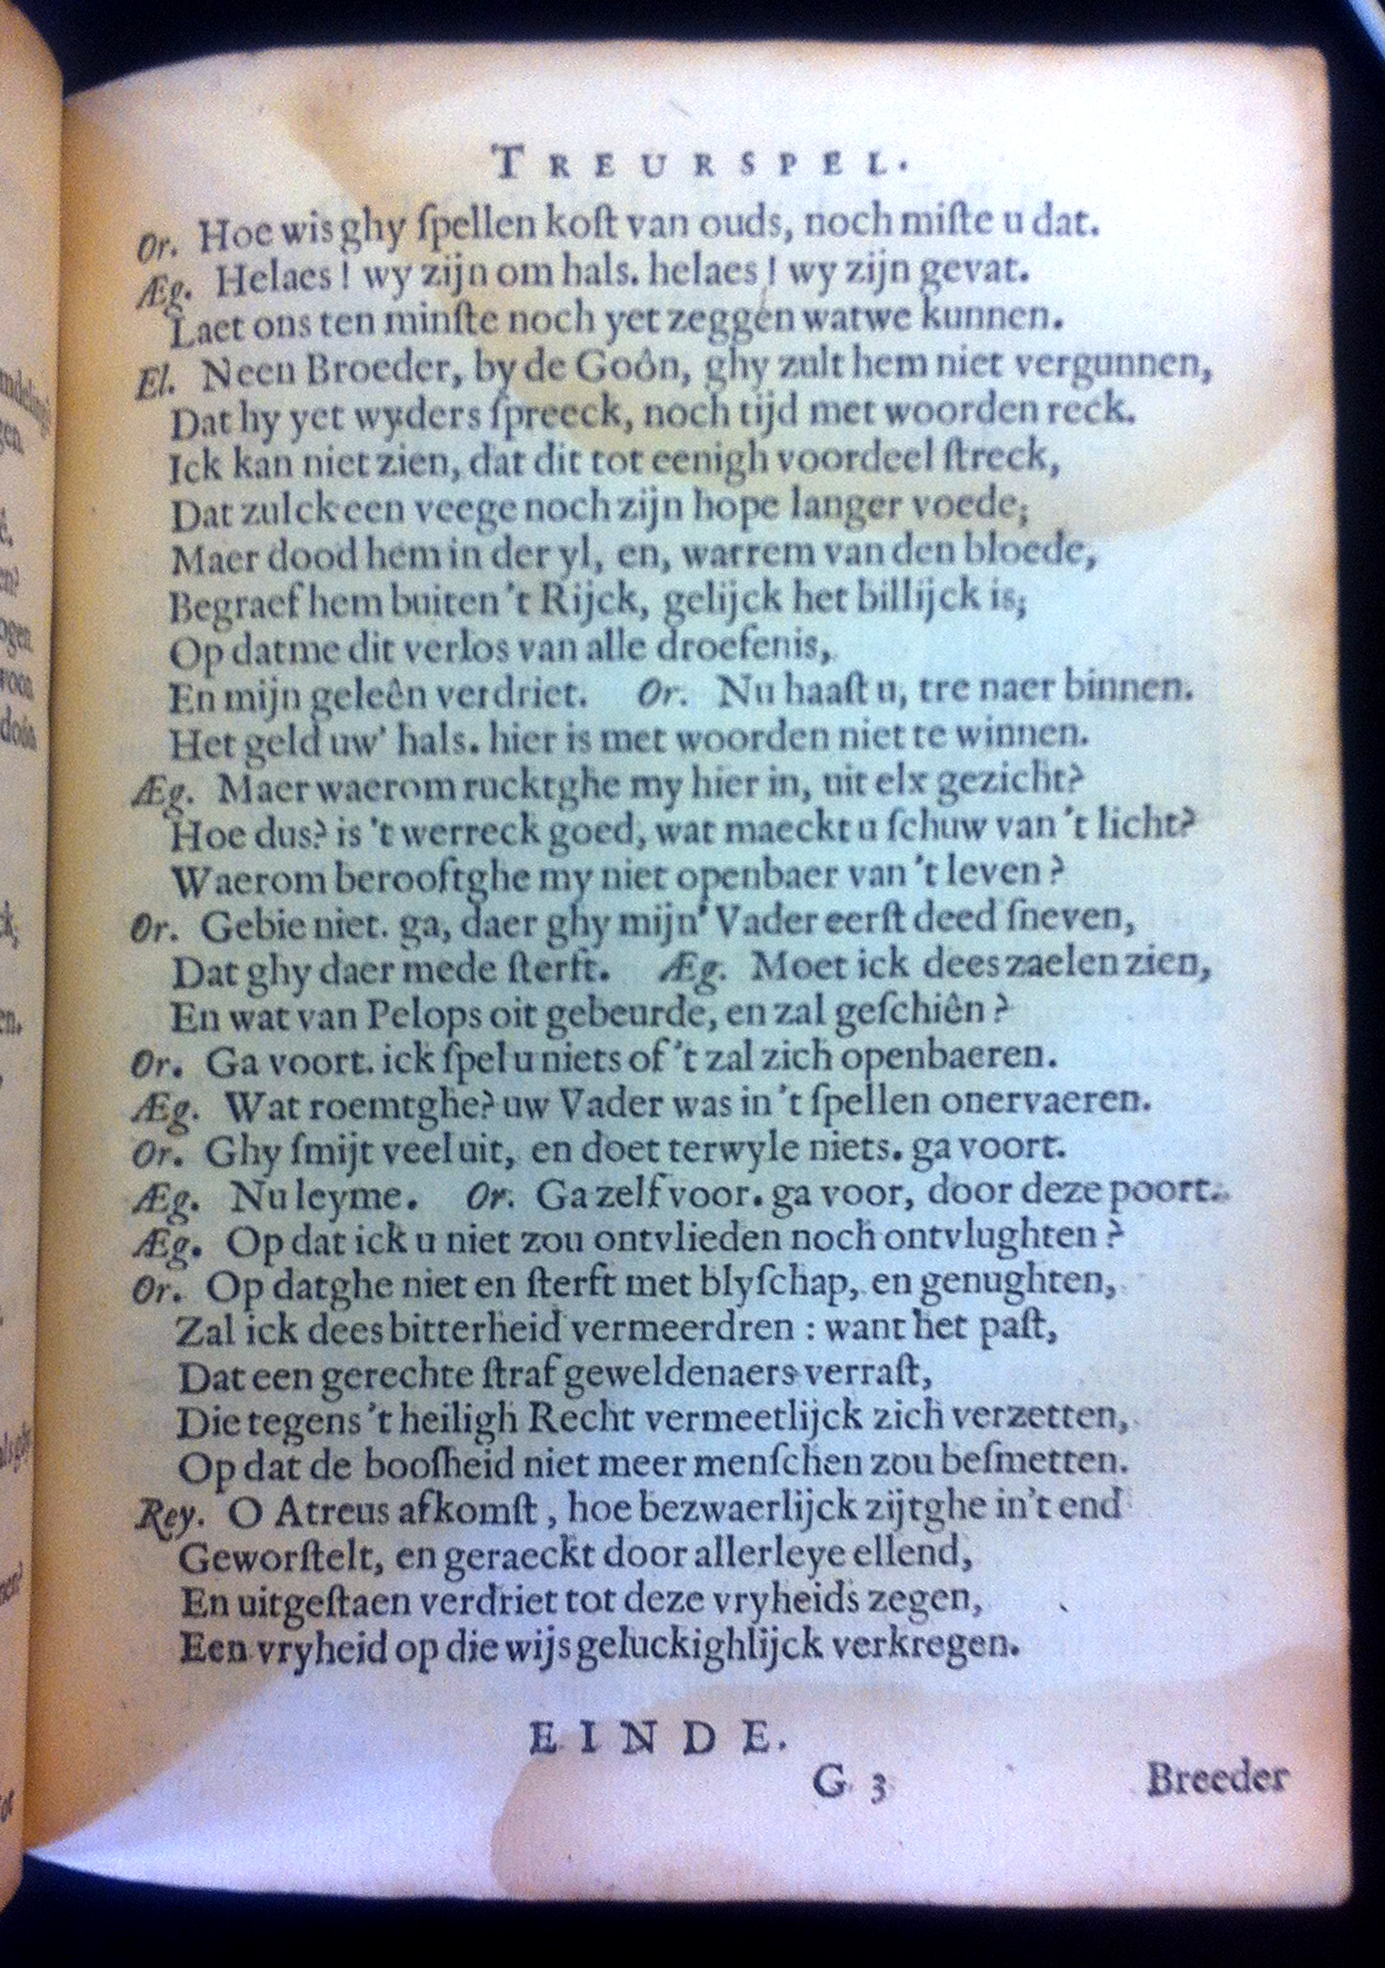 TREURSPEL.
Or. Hoe wis ghy ſpellen koſt van ouds, noch miſte u dat.
Æg. Helaes! wy zijn om hals. helaes! wy zijn gevat.
Laet ons ten minſte noch yet zeggen watwe kunnen.
El. Neen Broeder, by de Goôn, ghy zult hem niet vergunnen,
Dat hy yet wyders ſpreeck, noch tijd met woorden reck.
Ick kan niet zien, dat dit tot eenigh voordeel ſtreck,
Dat zulck een veege noch zijn hope langer voede;
Maer dood hem in der yl, en, warrem van den bloede,
Begraef hem buiten 't Rijck, gelijck het billijck is;
Op datme dit verlos van alle droefenis,
En mijn geleên verdriet. Or. Nu haaſt u, tre naer binnen.
Het geld uw' hals. hier is met woorden niet te winnen.
Æg. Maer waerom rucktghe my hier in, uit elx gezicht?
Hoe dus? is 't werreck goed, wat maeckt u ſchuw van 't licht?
Waerom berooftghe my niet openbaer van 't leven?
Or. Gebie niet. ga, daer ghy mijn' Vader eerſt deed ſneven,
Dat ghy daer mede ſterft. Æg. Moet ick dees zaelen zien,
En wat van Pelops oit gebeurde, en zal geſchiên?
Or. Ga voort. ick ſpel u niets of 't zal zich openbaeren.
Æg. Wat roemtghe? uw Vader was in 't ſpellen onervaeren.
Or. Ghy ſmijt veel uit, en doet terwyle niets. ga voort.
Æg. Nu leyme. Or. Ga zelf voor. ga voor, door deze poort.
Æg. Op dat ick u niet zou ontvlieden noch ontvlughten?
Or. Op datghe niet en ſterft met blyſchap, en genughten,
Zal ick dees bitterheid vermeerdren : want het paſt,
Dat een gerechte ſtraf geweldenaers verraſt,
Die tegens 't heiligh Recht vermeetlijck zich verzetten,
Op dat de booſheid niet meer menſchen zou beſmetten.
Rey. O Atreus afkomſt, hoe bezwaerlijck zijtghe in't end
Geworſtelt, en geraeckt door allerleye ellend,
En uitgeſtaen verdriet tot deze vryheids zegen,
Een vryheid op die wijs geluckighlijck verkregen.
EINDE.
G 3 Breeder